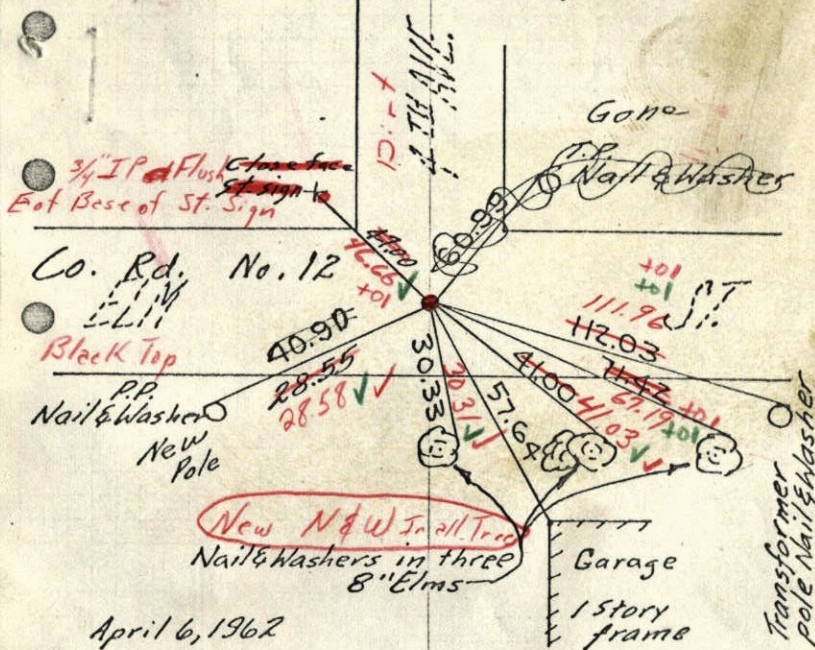 4TH AVE
AVE.
Dirt
Gone
T.P.
Nail & Washer
3/4" IP Flush
Close face
St. sign
E of Base of St. Sign
60.99
47.00
46.66
+01
Co. Rd. No. 12
ELM ST
Black Top
+01
+01
111.96
112.03
40.90
28.55
28.58
30.33
30.31
57.64
41.00
41.03
71.42
67.19
+01
+01
P.P.
Nail & Washer
New
Pole
New N & W In all Trees
Nail & Washers in three
8" Elms
Garage
1 Story
frame
Transformer
pole Nail & Washer
April 6, 1962